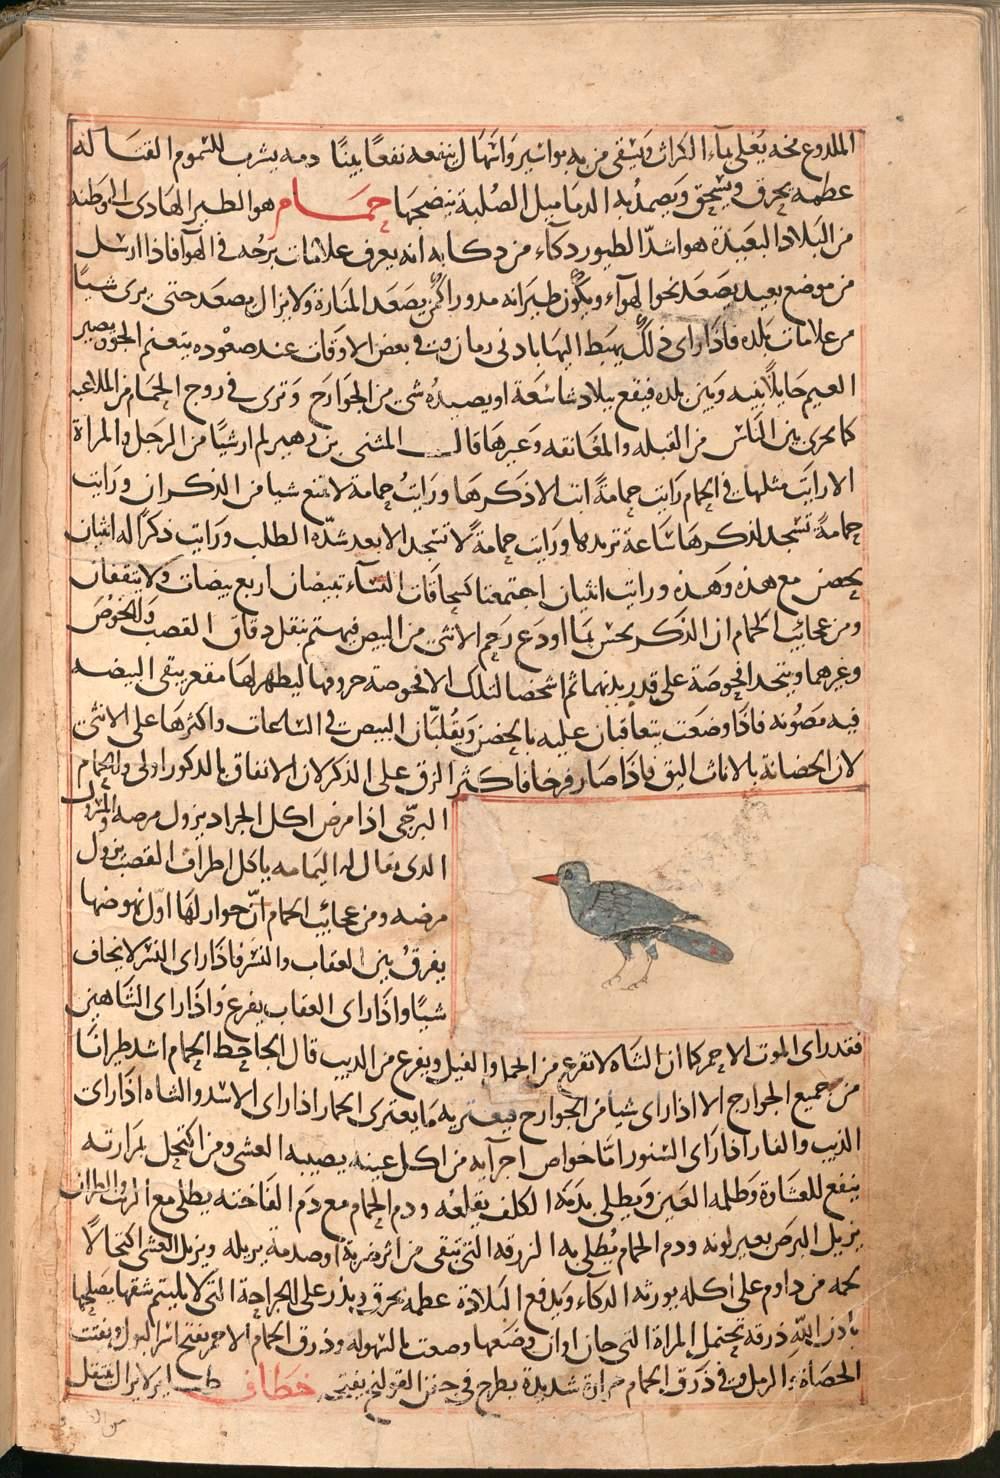 الملدوع مخه يغلى بماء الكراث ويسقى من به بواسير واسهال ينفعه نفعا بينا دمه يشرب للسموم القتالة
عظمه يحرق ويسحق ويضمد به الدماميل الصلبة ينضجها حمام هو الطير الهادى الى وطنه
من البلاد البعيدة هو اشد الطيور ذكاء من ذكايه انه يعرف علامات برجه فى الهوآ فاذا ارسل
من موضع بعيد يصعد نحو الهوآء ويكون طيرانه مدورا كمن يصعد المنارة ولا يزال يصعد حتى يرى شيا
من علامات بلده فاذا راى ذلك يهبط اليها بادنى زمان وفى بعض الاوقات عند صعوده يتغيم الجو يصير
الغيم حايلا بينه وبين بلده فيقع ببلاد شاسعة او يصيده شى من الجوارح وترى فى زوج الحمام من الملاعبه
كما يجرى بين الناس من القبله والمعانقه وغيرها قال المثنى بن زهير لم ار شيا من الرجل والمراة
الا رايت مثلها فى الحمام رايت حمامة ابت الا ذكرها ورايت حمامة لا تمنع شيا من الذكران ورايت
حمامة تسجد لذكرها ساعة تريدها ورايت حمامة لا تسجد الا بعد شدة الطلب ورايت ذكرا له انثيان
يحضن مع هذه وهذه ورايت انثيان اجتمعتا كسحاقات النساء تبيضان اربع بيضات ولا يتفقان
ومن عجايب الحمام ان الذكر يحس بما اودع رحم الانثى من البيض فيهتم بنقل دقاق القصب والخوص
وغيرهما ويتخذ افحوصة على قدر بدنهما ثم اشخصا لتلك الافحوصة حروفها ليظهر لها مقعر يبقى البيضه
فيه مصونه فاذا وضعت يتعاقبان عليه بالحضن ويقلبان البيض فى الساعات واكثرها على الانثى
لان الحضانة بالاناث اليق فاذا صار فرخا فاكثر الزق على الذكر لان الانفاق بالذكور اولى والحمام
البرجى اذا مرض اكل الجراد يزول مرضه
الذى يقال له اليمامه ياكل اطراف القصب يزول
مرضه ومن عجايب الحمام ان جوازلها اول نهوضها
يفرق بين العقاب والنسر فاذا راى النسر لا يخاف
شيا واذا راى العقاب يفزع واذا راى الشاهين
فقد راى الموت الاحمر كما ان الشاه لا تفزع من الجمل والفيل ويفزع من الذيب قال الجاحظ الحمام اشد طيرانا
من جميع الجوارح الا اذا راى شيا من الجوارح فيعتريه ما يعترى الحمار اذا راى الاسد والشاه اذا رات
الذيب والفار اذا راى السنور اما خواص اجزآيه من اكل عينه يصيبه العشى ومن اكتحل بمرارته
ينفع للغشاوة وظلمه العين ويطلى بدمه الكلف يقلعه ودم الحمام مع دم الفاخته يطلى مع الزيت
يزيل البرص بغير لونه ودم الحمام يطلى به الزرقه التى تبقى من اثر ضربة او صدمة يزيله ويزيل العشى اكتحالا
لحمه من داوم على اكله يورثه الذكاء ويدفع البلادة عظمه يحرق ويذر على الجراحة التى لا يلتيم شقها يصلحها
باذن الله ذرقه تحتمل المراة التى حان اوان وضعها وضعت بالسهولة وذرق الحمام الاحمر يفتح اسر البول ويفتت
الحصاة الرمل وفى ذرق الحمام حرارة شديدة يطرح فى حقن القولنج يفتح خطاف طير لا يزال يتنقل